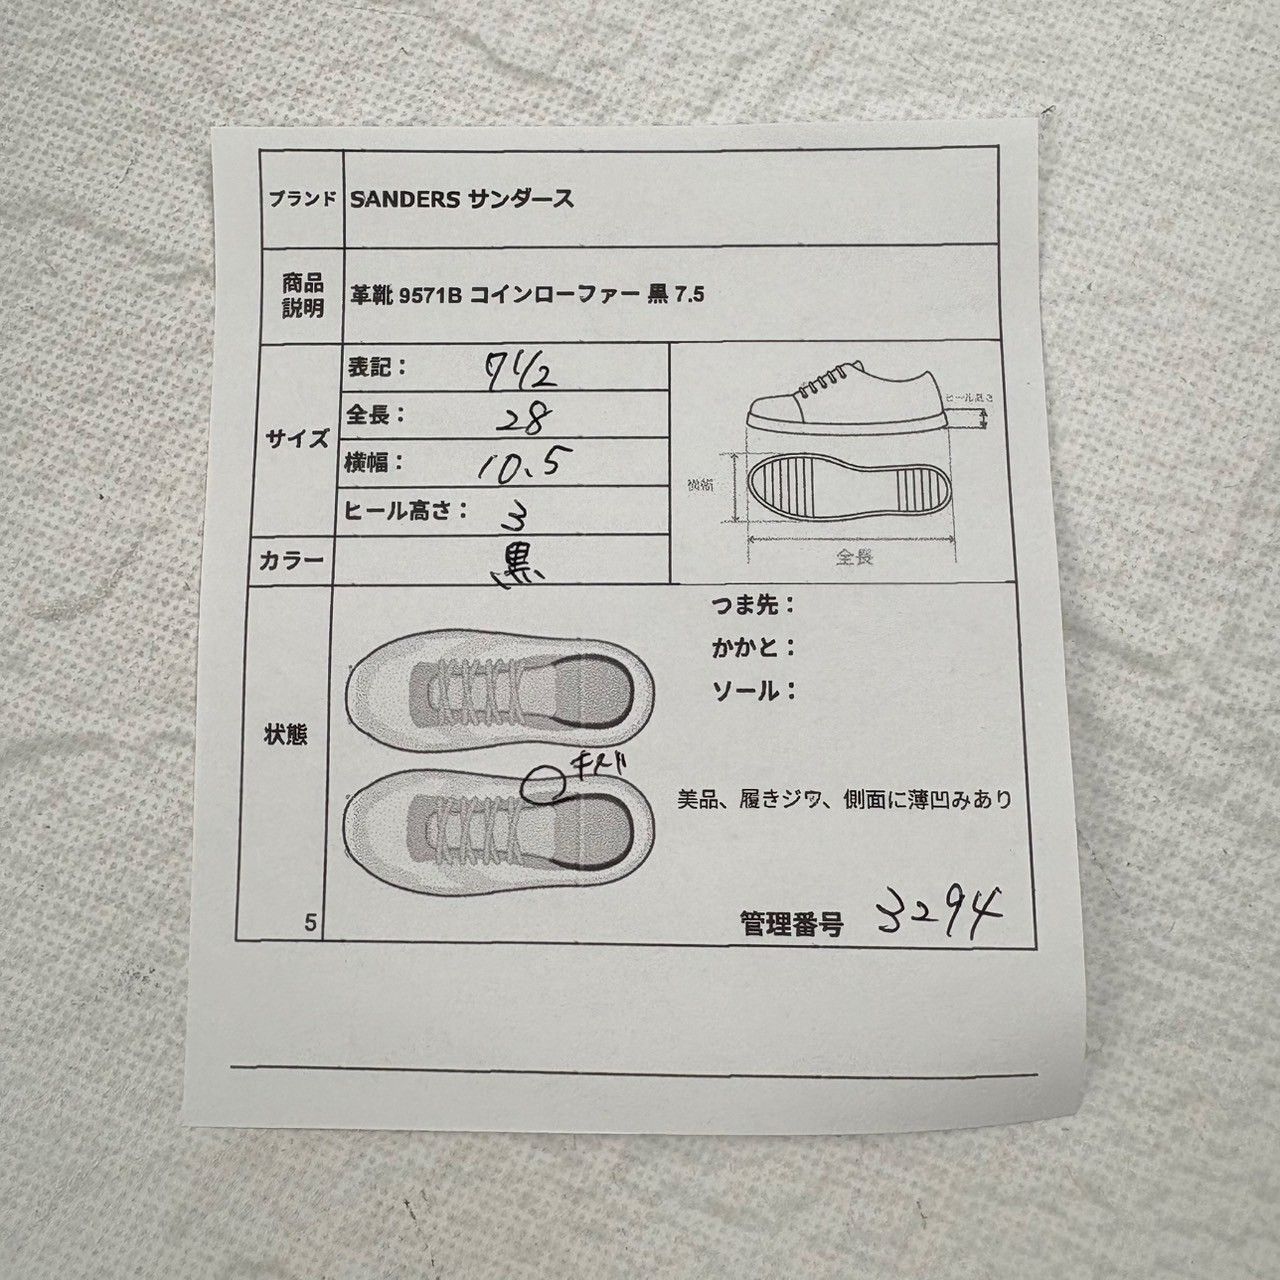 ブランド SANDERS サンダース
商品説明 革靴 9571B コインローファー 黒 7.5
サイズ
表記： 7 1/2
全長： 28
横幅： 10.5
ヒール高さ： 3
ヒール高さ
横幅
全長
カラー 黒
状態
つま先：
かかと：
ソール：
キズ
美品、履きジワ、側面に薄凹みあり
5
管理番号 3294